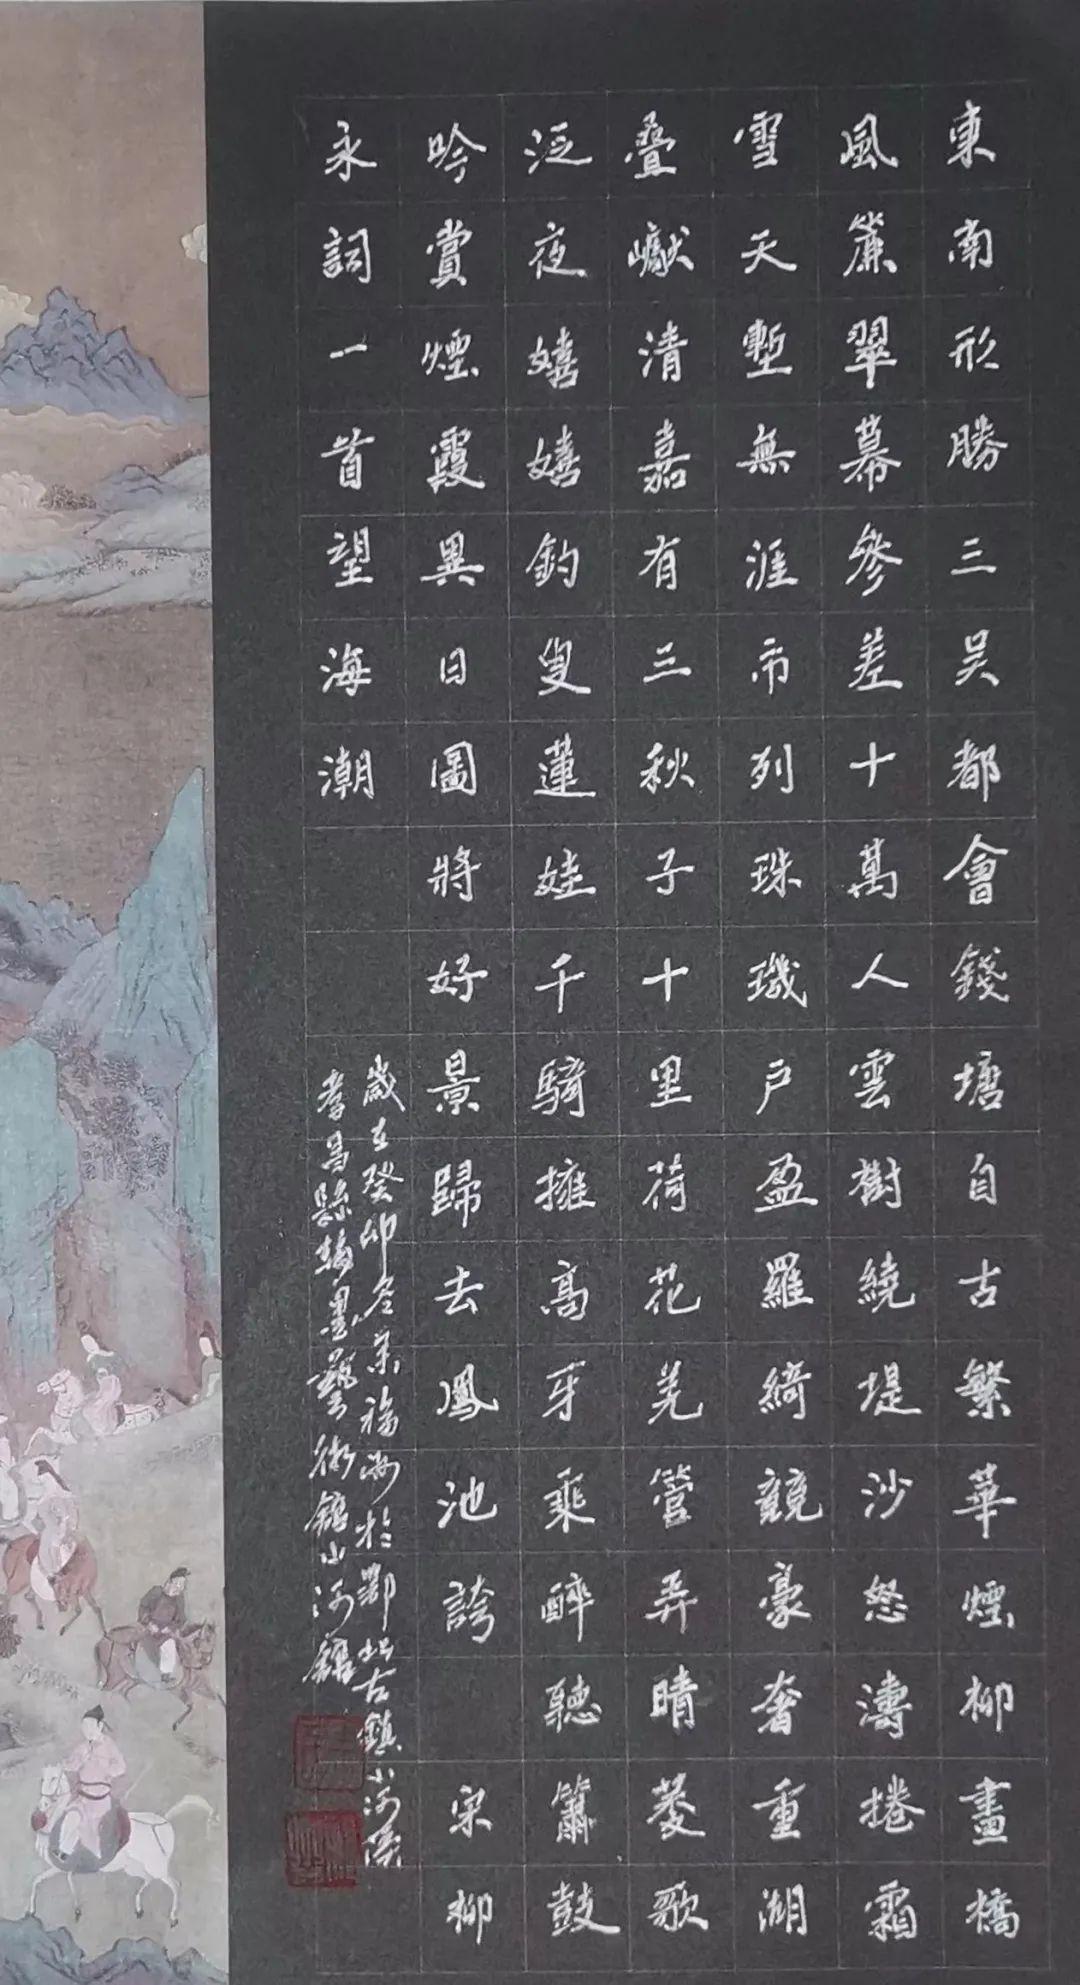 東南形勝三吴都會錢塘自古繁華煙柳畫橋
風簾翠幕參差十萬人雲樹繞堤沙怒濤捲霜
雪天塹無涯市列珠璣户盈羅綺競豪奢重湖
疊巘清嘉有三秋子十里荷花羌管弄晴菱歌
泛夜嬉嬉釣叟蓮娃千騎擁高牙乘醉聽簫鼓
吟賞煙霞異日圖將好景歸去鳳池誇 宋柳
永詞一首望海潮
歲在癸卯冬葉福州於鄂北古鎮小河溪
孝昌縣翰墨藝術館山河館